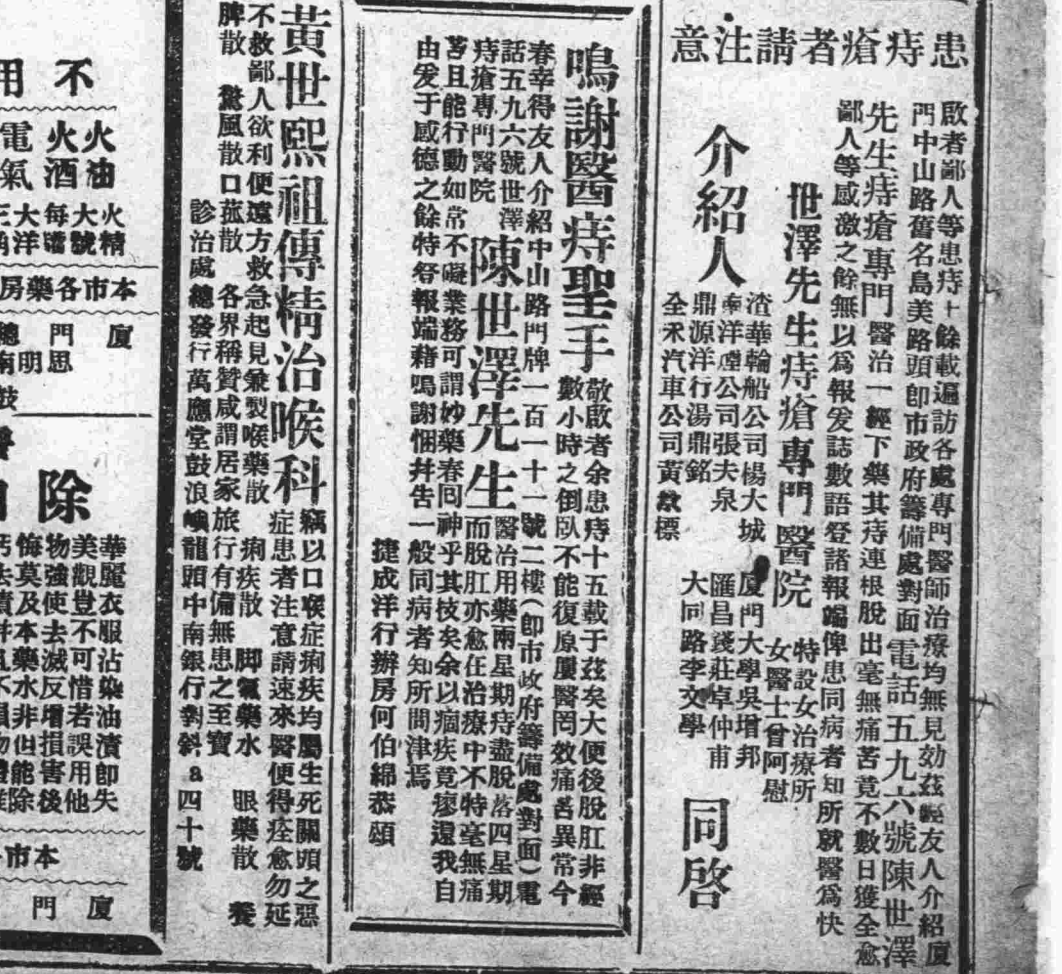 患痔瘡者請注意
啟者鄙人等患痔十餘載遍訪各處專門醫師治療均無見効茲經友人介紹厦
門中山路舊名島美路頭卽市政府籌備處對面電話五九六號陳世澤
先生痔瘡專門醫治一經下藥其痔連根脫出毫無痛苦竟不數日獲全愈
鄙人等感激之餘無以爲報爰誌數語登諸報端俾患同病者知所就醫爲快
世澤先生痔瘡專門醫院
特設女治療所
女醫士曾阿慰
介紹人
渣華輪船公司楊大城
洋烟公司張夫泉
鼎源洋行湯鼎銘
全禾汽車公司黃標
厦門大學吳增邦
匯昌錢莊卓仲甫
大同路李文學
同啓
鳴謝醫痔聖手
敬啟者余患痔十五載于茲矣大便後脫肛非經
數小時之倒臥不能復原屢醫罔效痛苦異常今
春幸得友人介紹中山路門牌一百一十一號二樓(卽市政府籌備處對面)電
話五九六號世澤
痔瘡專門醫院
陳世澤先生
醫治用藥兩星期痔盡脫落四星期
而脫肛亦愈在治療中不特毫無痛
苦且能行動如常不礙業務可謂妙藥春囘神乎其技矣余以痼疾竟瘳還我自
由爰于感德之餘特登報端藉鳴謝悃幷告一般同病者知所問津焉
捷成洋行辦房何伯綿恭頌
黃世熙祖傳精治喉科
竊以口喉症痢疾均屬生死關頭之惡
症患者注意請速來醫便得痊愈勿延
不救鄙人欲利便遠方救急起見兼製喉藥散 痢疾散 脚氣藥水 眼藥散 養
脾散 驚風散口菰散 各界稱贊咸謂居家旅行有備無患之至寶
診治處總發行萬應堂鼓浪嶼龍頭中南銀行對斜a四十號
不用
火油
火酒
電氣
火精
大號
每
大洋
本市各藥房
厦門
思明南
除
華麗衣服沾染油漬卽失
美觀豈不可惜若誤用他
物強使去滅反增損害後
悔莫及本藥水非但能除
本市
厦門